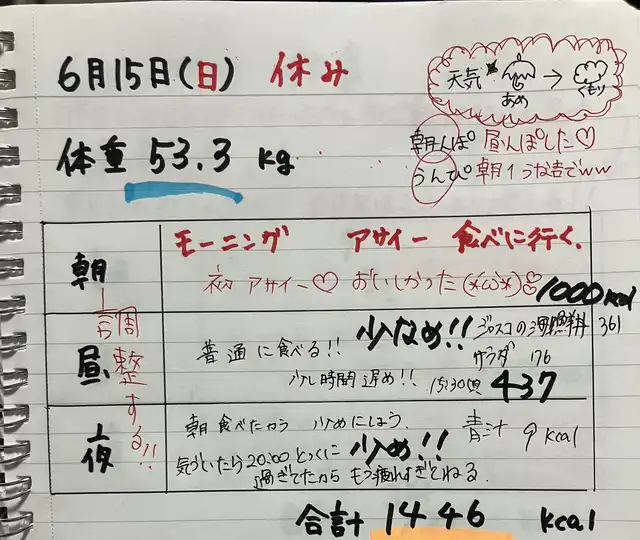 6月15日(日) 休み
天気 あめ → くもり
体重 53.3 kg
朝んぽ 昼んぽした♡
うんぴ 朝イウな吉でww
朝
モーニング アサイー 食べに行く.
初アサイー♡ おいしかった 1000kcal
昼
普通に食べる!! 少なめ!! 361
サラダ 176
少し時間遅め!! 15:30頃 437
調整する!!
夜
朝食べたから 少めにしよう. 青汁 9kcal
気づいたら20:00とっくに 少め!!
過ぎてたから もう疲れすぎとねる.
合計 1446 kcal